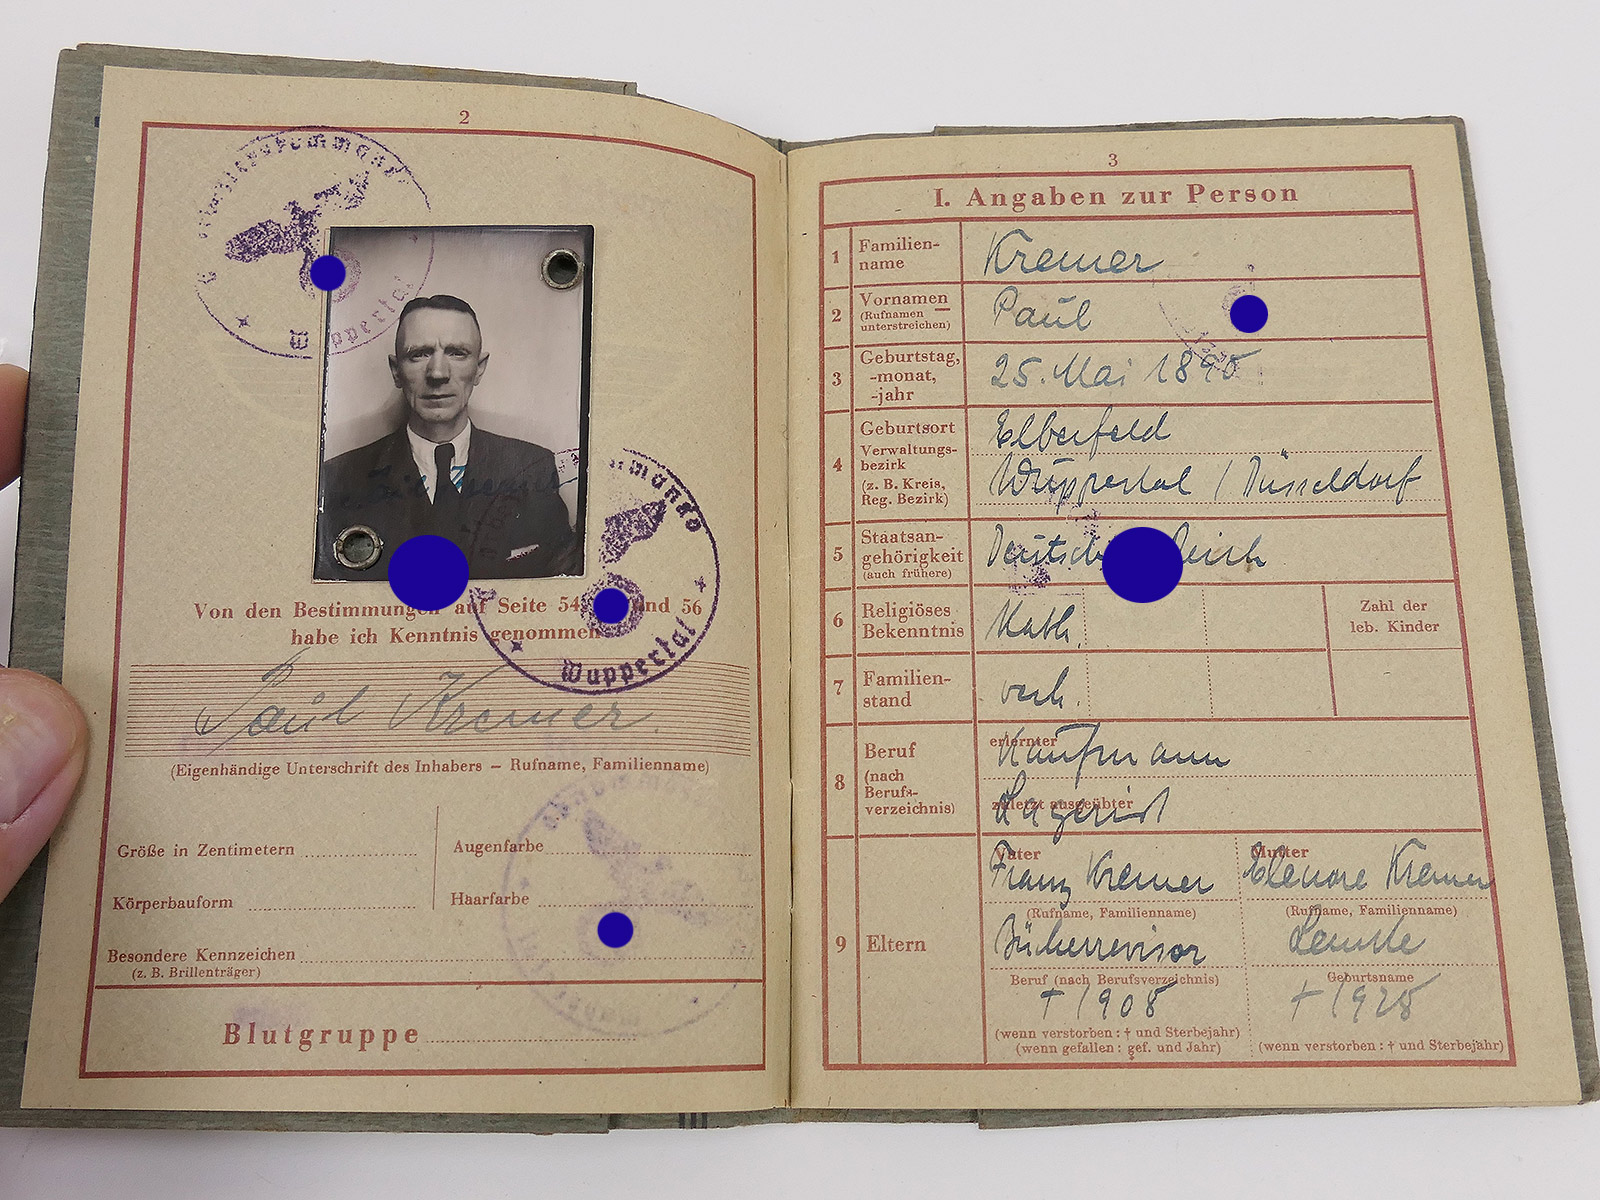 2
Wuppertal
Von den Bestimmungen auf Seite 54, und 56
habe ich Kenntnis genommen
Wuppertal
Paul Kremer
(Eigenhändige Unterschrift des Inhabers – Rufname, Familienname)
Größe in Zentimetern
Augenfarbe
Körperbauform
Haarfarbe
Besondere Kennzeichen
(z. B. Brillenträger)
Blutgruppe
3
I. Angaben zur Person
1 Familien-
name
Kremer
2 Vornamen
(Rufnamen
unterstreichen)
Paul
3 Geburtstag,
-monat,
-jahr
25. Mai 1890
4 Geburtsort
Verwaltungs-
bezirk
(z. B. Kreis,
Reg. Bezirk)
Elberfeld
Wuppertal / Düsseldorf
5 Staatsan-
gehörigkeit
(auch frühere)
Reich
6 Religiöses
Bekenntnis
Kath.
Zahl der
leb. Kinder
7 Familien-
stand
verh.
8 Beruf
(nach
Berufs-
verzeichnis)
erlernter
Kaufmann
zuletzt ausgeübter
Lagerist
9 Eltern
Vater
Franz Kremer
(Rufname, Familienname)
Bücherrevisor
Beruf (nach Berufsverzeichnis)
† 1908
(wenn verstorben: † und Sterbejahr)
(wenn gefallen: gef. und Jahr)
Mutter
Elenore Kremer
(Rufname, Familienname)
Geburtsname
† 1928
(wenn verstorben: † und Sterbejahr)